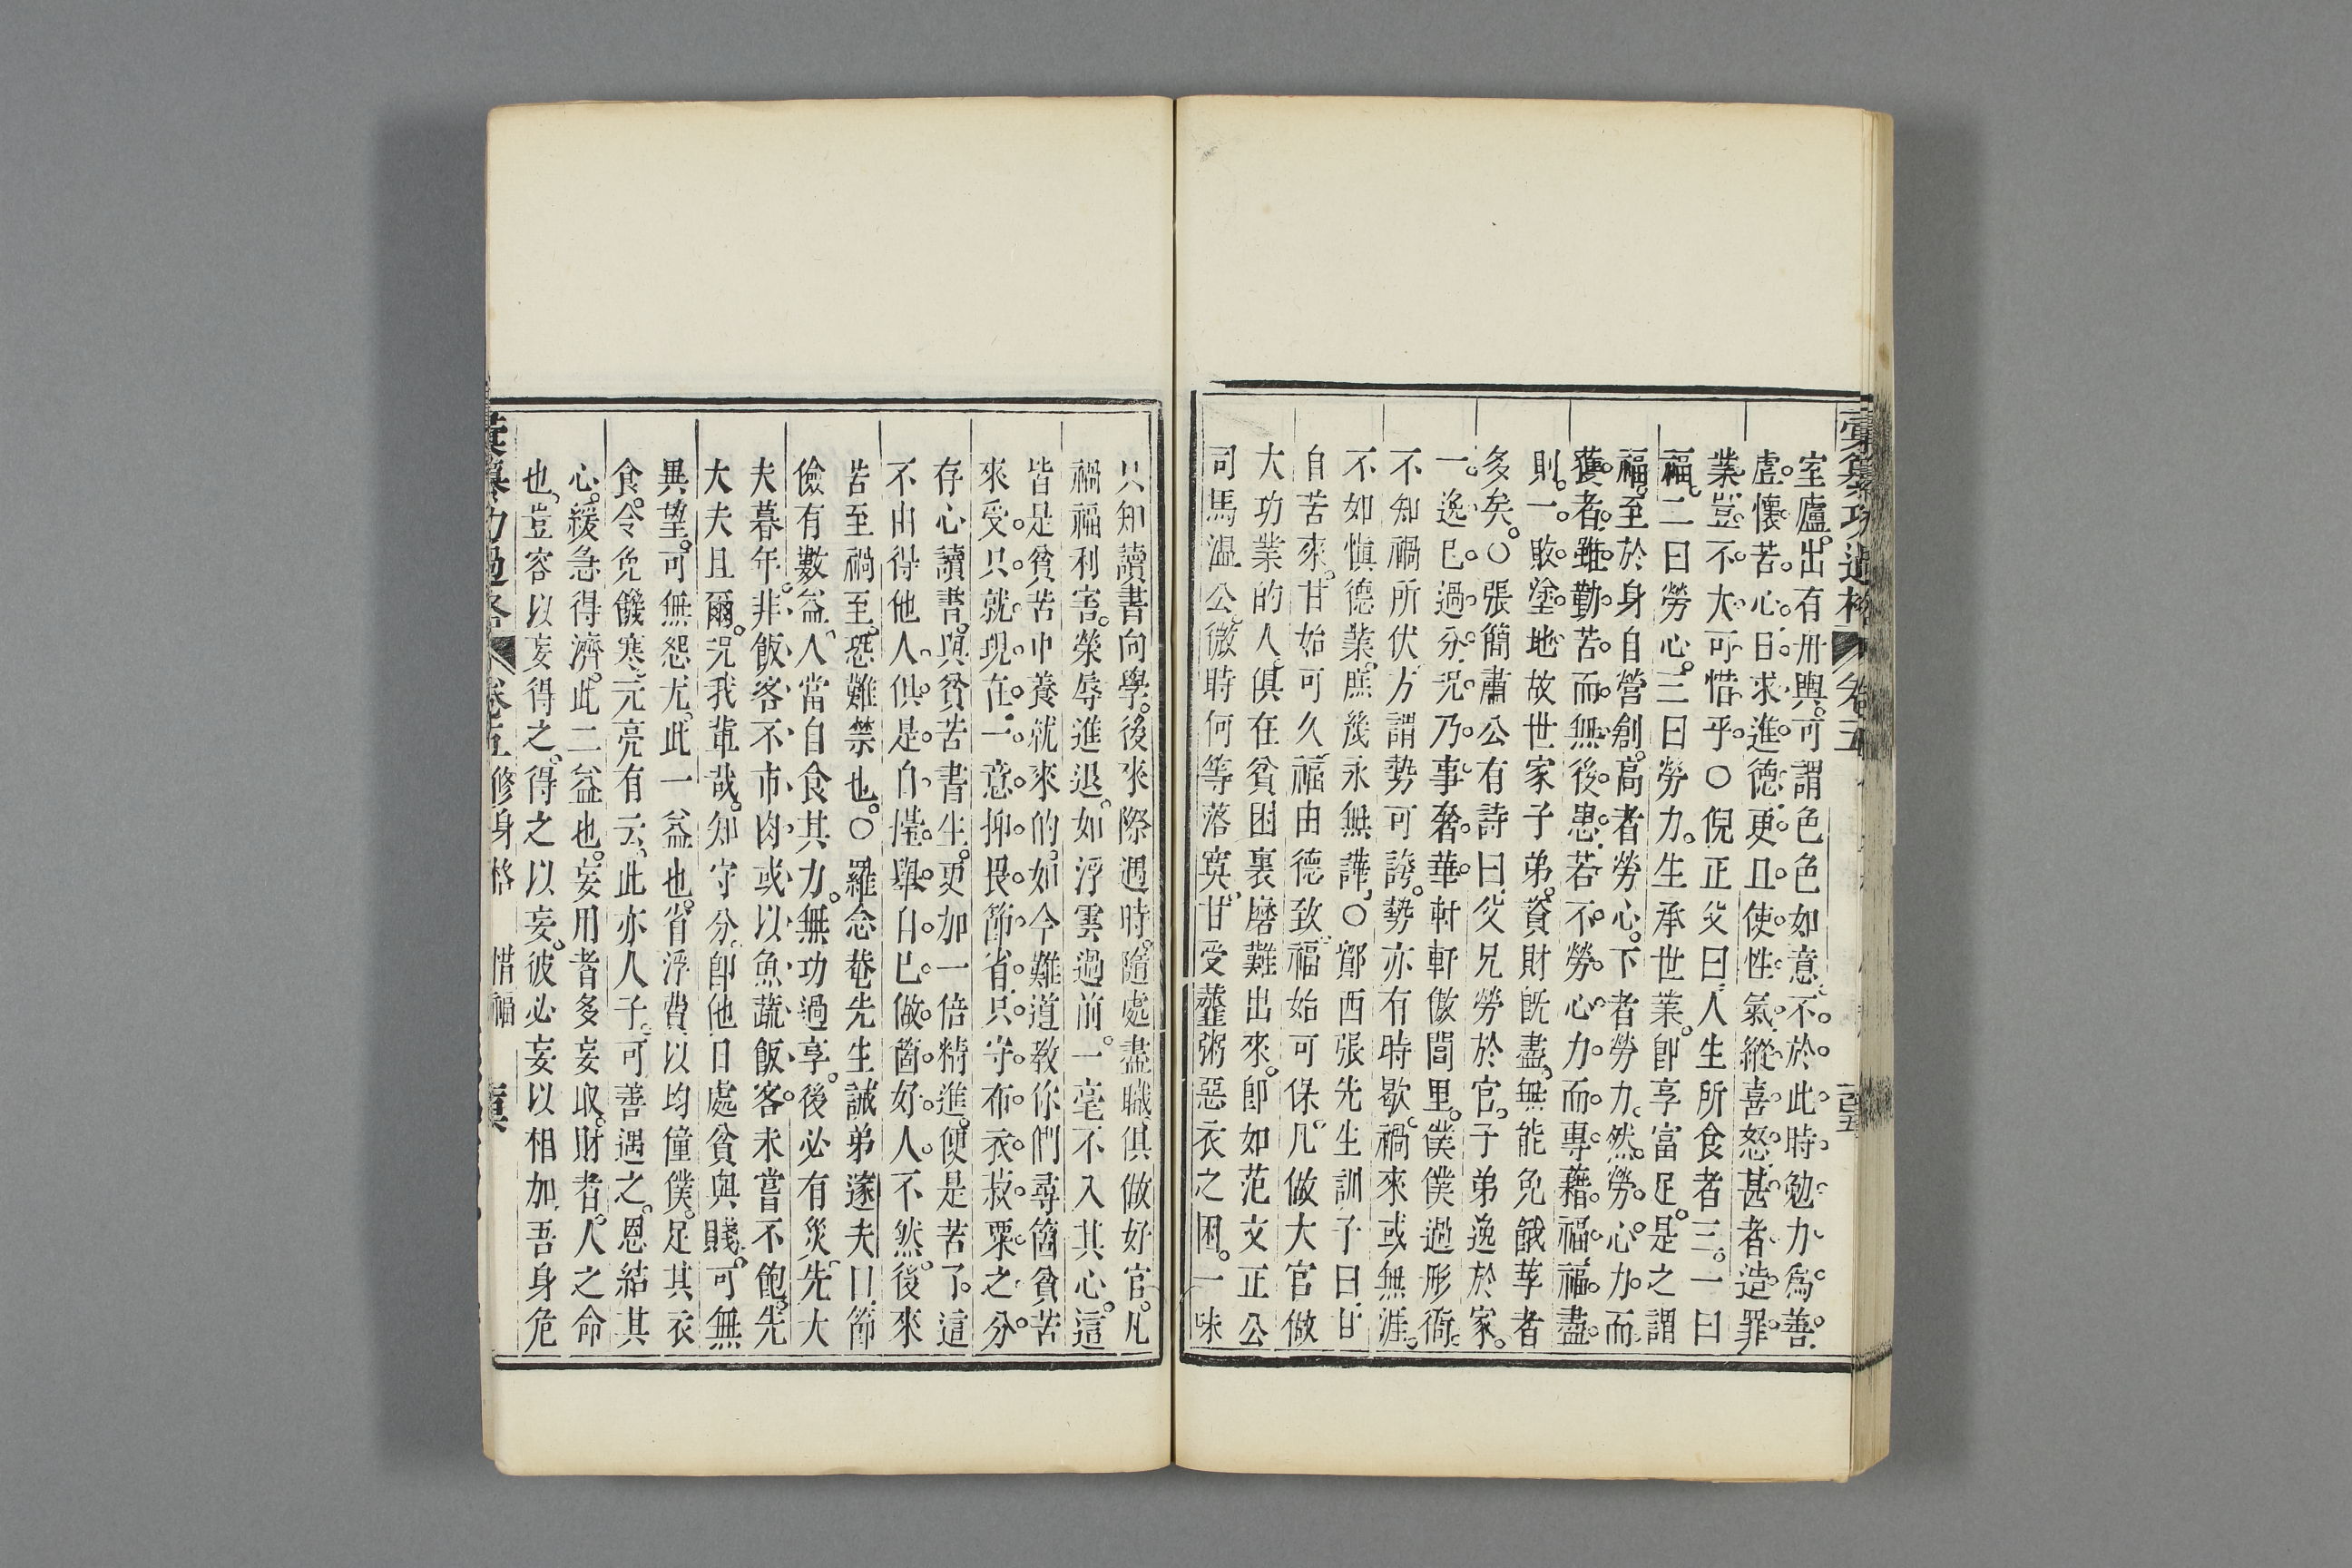 彙纂功過格 卷五
室廬。出有舟輿。可謂色色如意。不於此時勉力爲善。
虛懷苦心。日求進德。更且使性氣。縱喜怒。甚者造罪
業。豈不大可惜乎。○倪正父曰。人生所食者三。一曰
福。二曰勞心。三曰勞力。生承世業。卽享富足。是之謂
福。至於身自營創。高者勞心。下者勞力。然勞心力而
獲者。雖勤苦而無後患。若不勞心力而專藉福。福盡
則一敗塗地。故世家子弟。資財旣盡。無能免餓莩者
多矣。○張簡肅公有詩曰。父兄勞於官。子弟逸於家。
一逸已過分。況乃事奢華。軒軒傲閭里。僕僕過形衙。
不知禍所伏。方謂勢可誇。勢亦有時歇。禍來或無涯。
不如愼德業。庶幾永無譁。○鄭西張先生訓子曰。甘
自苦來。甘始可久。福由德致。福始可保。凡做大官做
大功業的人。俱在貧困裏磨難出來。卽如范文正公
司馬溫公。微時何等落寞。甘受虀粥惡衣之困。一味
只知讀書向學。後來際遇時。隨處盡職。俱做好官。凡
禍福利害。榮辱進退。如浮雲過前。一毫不入其心。這
皆是貧苦中養就來的。如今難道敎你們尋箇貧苦
來受。只就現在。一意抑畏節省。只守布衣菽粟之分。
存心讀書。與貧苦書生。更加一倍精進。便是苦了。這
不由得他人。俱是自擡舉自己做箇好人。不然。後來
苦至禍至。恐難禁也。○羅念菴先生誡弟遂夫曰。節
儉有數益。人當自食其力。無功過享。後必有災。先大
夫暮年。非飯客不市肉。或以魚蔬飯客。未嘗不飽。先
大夫且爾。況我輩哉。知守分。卽他日處貧與賤。可無
異望。可無怨尤。此一益也。省浮費以均僮僕。足其衣
食。令免饑寒。元亮有云。此亦人子。可善遇之。恩結其
心。緩急得濟。此二益也。妄用者多妄取。財者。人之命
也。豈容以妄得之。得之以妄。彼必妄以相加。吾身危
彙纂功過格 卷五 修身格 惜福